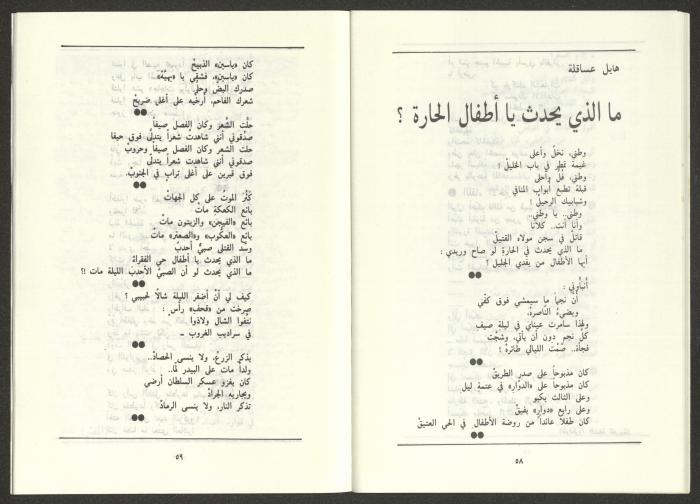 هايل عساقلة
ما الذي يحدث يا أطفال الحارة ؟
وطني، نخل وأعلى
غيمة تمطر في باب الخليل !
وطني، فل وأحلى
قبلة تطبع أبواب المنافي
وشبابيك الرحيل
وطني.. يا وطني..
وأنا أنت.. كلانا
قاتل في سجن مولاه القتيل
ما الذي يحدث في الحارة لو صاح وريدي :
أيها الأطفال من يفدي الجليل !
أنبأوني :
أن نجما ما سيمشي فوق كفي
ويضيء الناصرة،
ولهذا سامرت عيناي في ليلة صيف
كل نجم دون أن يأتي، وشجت
فجأة.. صمت الليالي طائرة !
كان مذبوحا على صدر الطريق
كان مذبوحا على «الدوار» في عتمة ليل
وعلى الثالث يكبو
وعلى رابع «دوار» يفيق
كان طفلا عائدا من روضة الأطفال في الحي العتيق
٥٨
كان «ياسين» الذبيح
كان «ياسين»، فشقي يا «بهية»
صدرك البض وحلي
شعرك الفاحم، أرخيه على أغلى ضريح
حلت الشعر وكان الفصل صيفا
صدقوني أنني شاهدت شعرا يتدلى فوق حيفا
حلت الشعر وكان الفصل صيفا وحروب
صدقوني أنني شاهدت شعرا يتدلى
فوق قبرين على أغلى تراب في الجنوب.
كثر الموت على كل الجهات
بائع الكعكة مات
بائع «الفيجن» والزيتون مات
بائع «العكوب» و«الصعتر» مات
وسد القتلى صبي أحدب
ما الذي يحدث يا أطفال حي الفقراء
ما الذي يحدث لو أن الصبي الأحدب الليلة مات ؟!
كيف لي أن أضفر الليلة شالا لحبيبي ؟
صرخت من «قحف» رأس :
نتفوا الشال ولاذوا
في سراديب الغروب ـ
يذكر الزرع، ولا ينسى الحصاد..
ولدا مات على البيدر لما..
كان يغزو عسكر السلطان أرضي
ويحاربه الجراد
تذكر النار، ولا ينسى الرماد..
٥٩